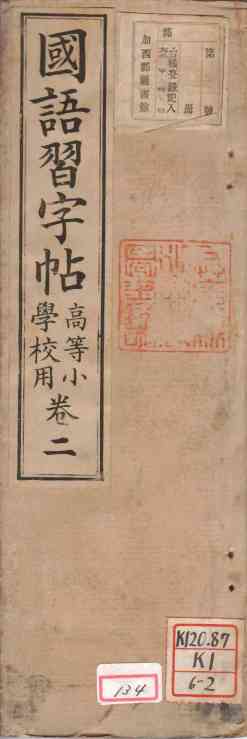 國語習字帖
高等小
學校用
卷二
第
號
冊
台帳登錄記入
加西郡圖書館
134
K120.87
K1
6-2